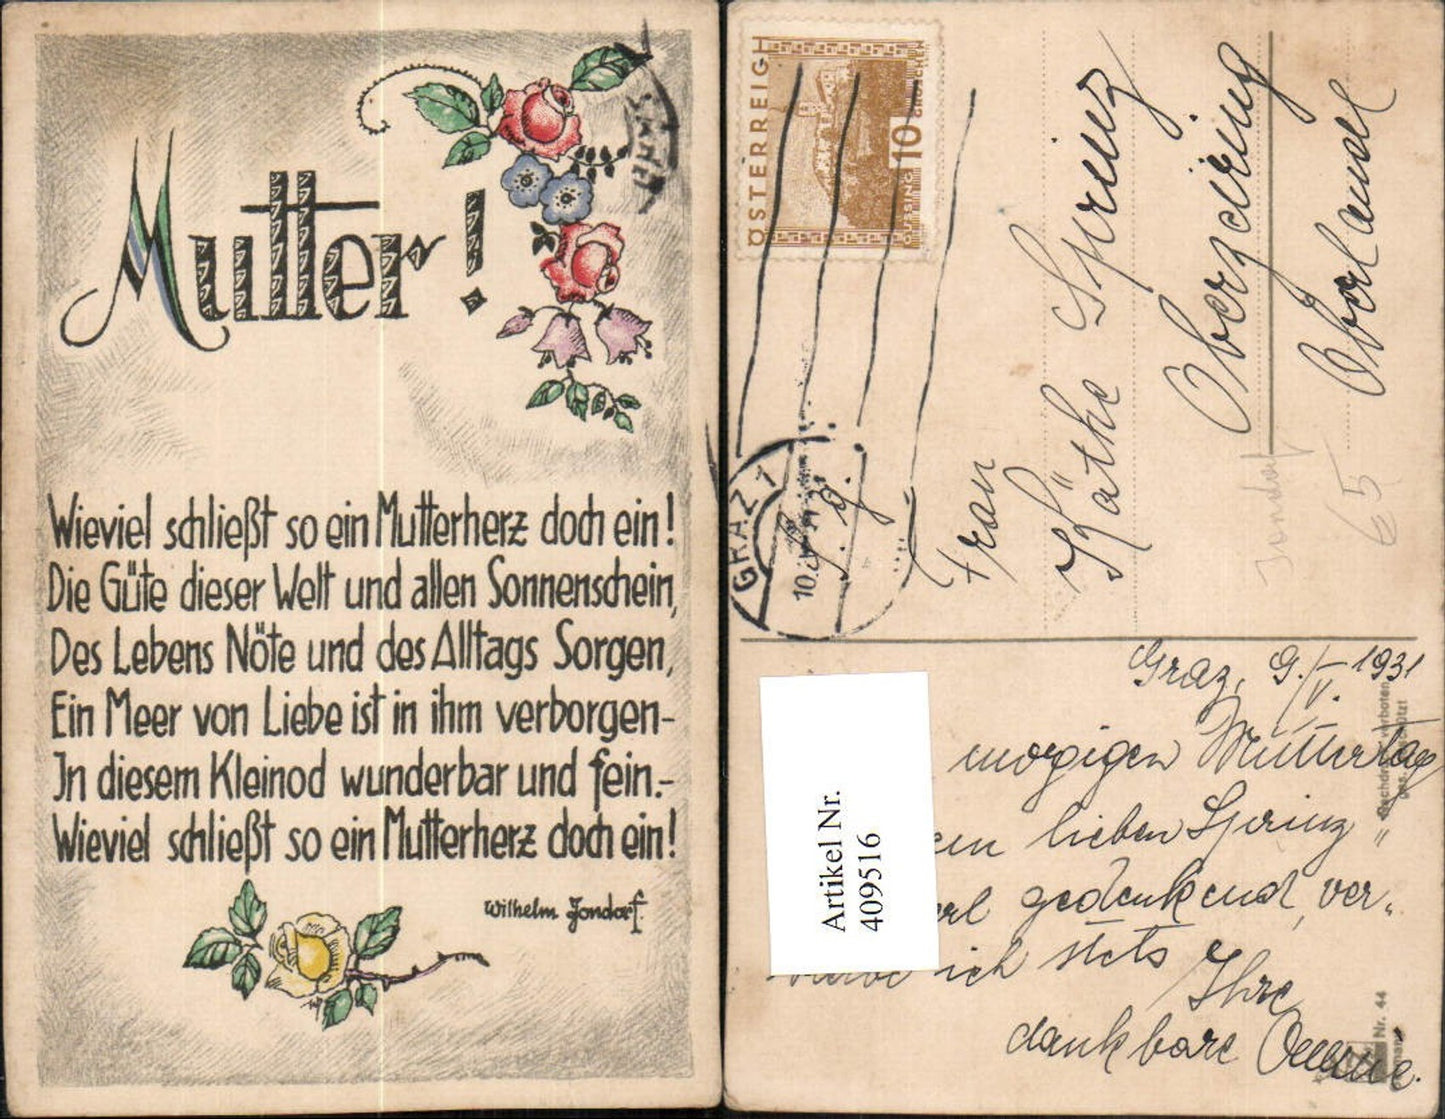 Mutter!
Wieviel schließt so ein Mutterherz doch ein!
Die Güte dieser Welt und allen Sonnenschein,
Des Lebens Nöte und des Alltags Sorgen,
Ein Meer von Liebe ist in ihm verborgen-
In diesem Kleinod wunderbar und fein.-
Wieviel schließt so ein Mutterherz doch ein!
Wilhelm Jondorf.
ÖSTERREICH
10
GROSCHEN
GÜSSING
GRAZ 1
Frau
Käthe Sprinz
Oberzeiring
Jondorf
65
Graz, 9./V. 1931
morgigen Muttertag
lieben Sprinz
gedenkend, ver-
ich stets
Ihre
dankbare
Nr. 44
Artikel Nr.
409516